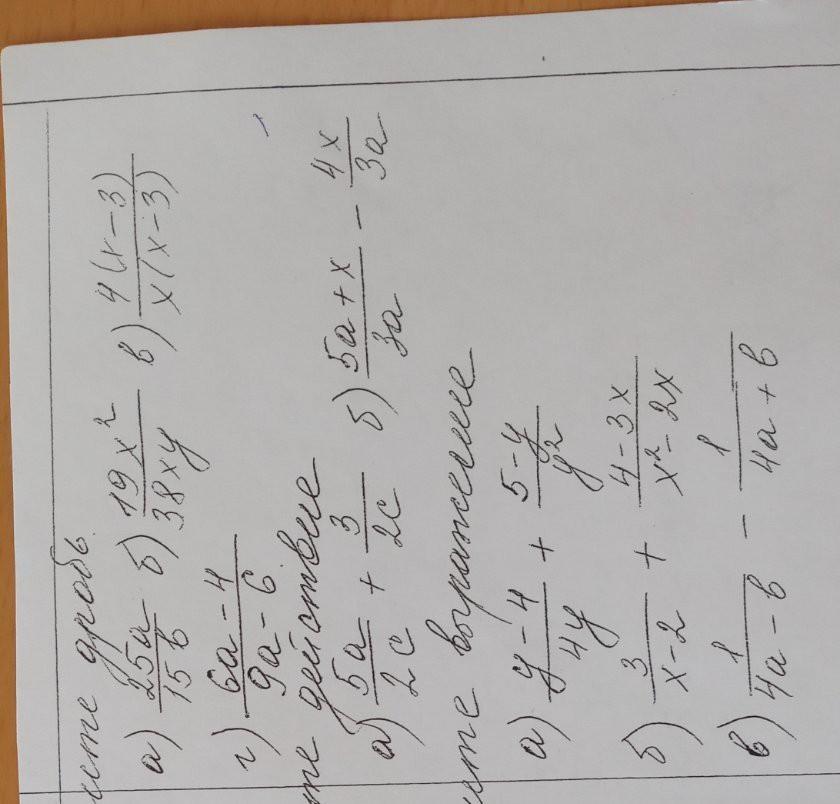 ите дробь
а) 25a/15b б) 19x²/38xy в) 4(x-3)/x(x-3)
г) 6a-4/9a-6
те действие
а) 5a/2c + 3/2c б) 5a+x/3a - 4x/3a
ите выражение
а) y-4/4y + 5-y/y²
б) 3/x-2 + 4-3x/x²-2x
в) 1/4a-b - 1/4a+b